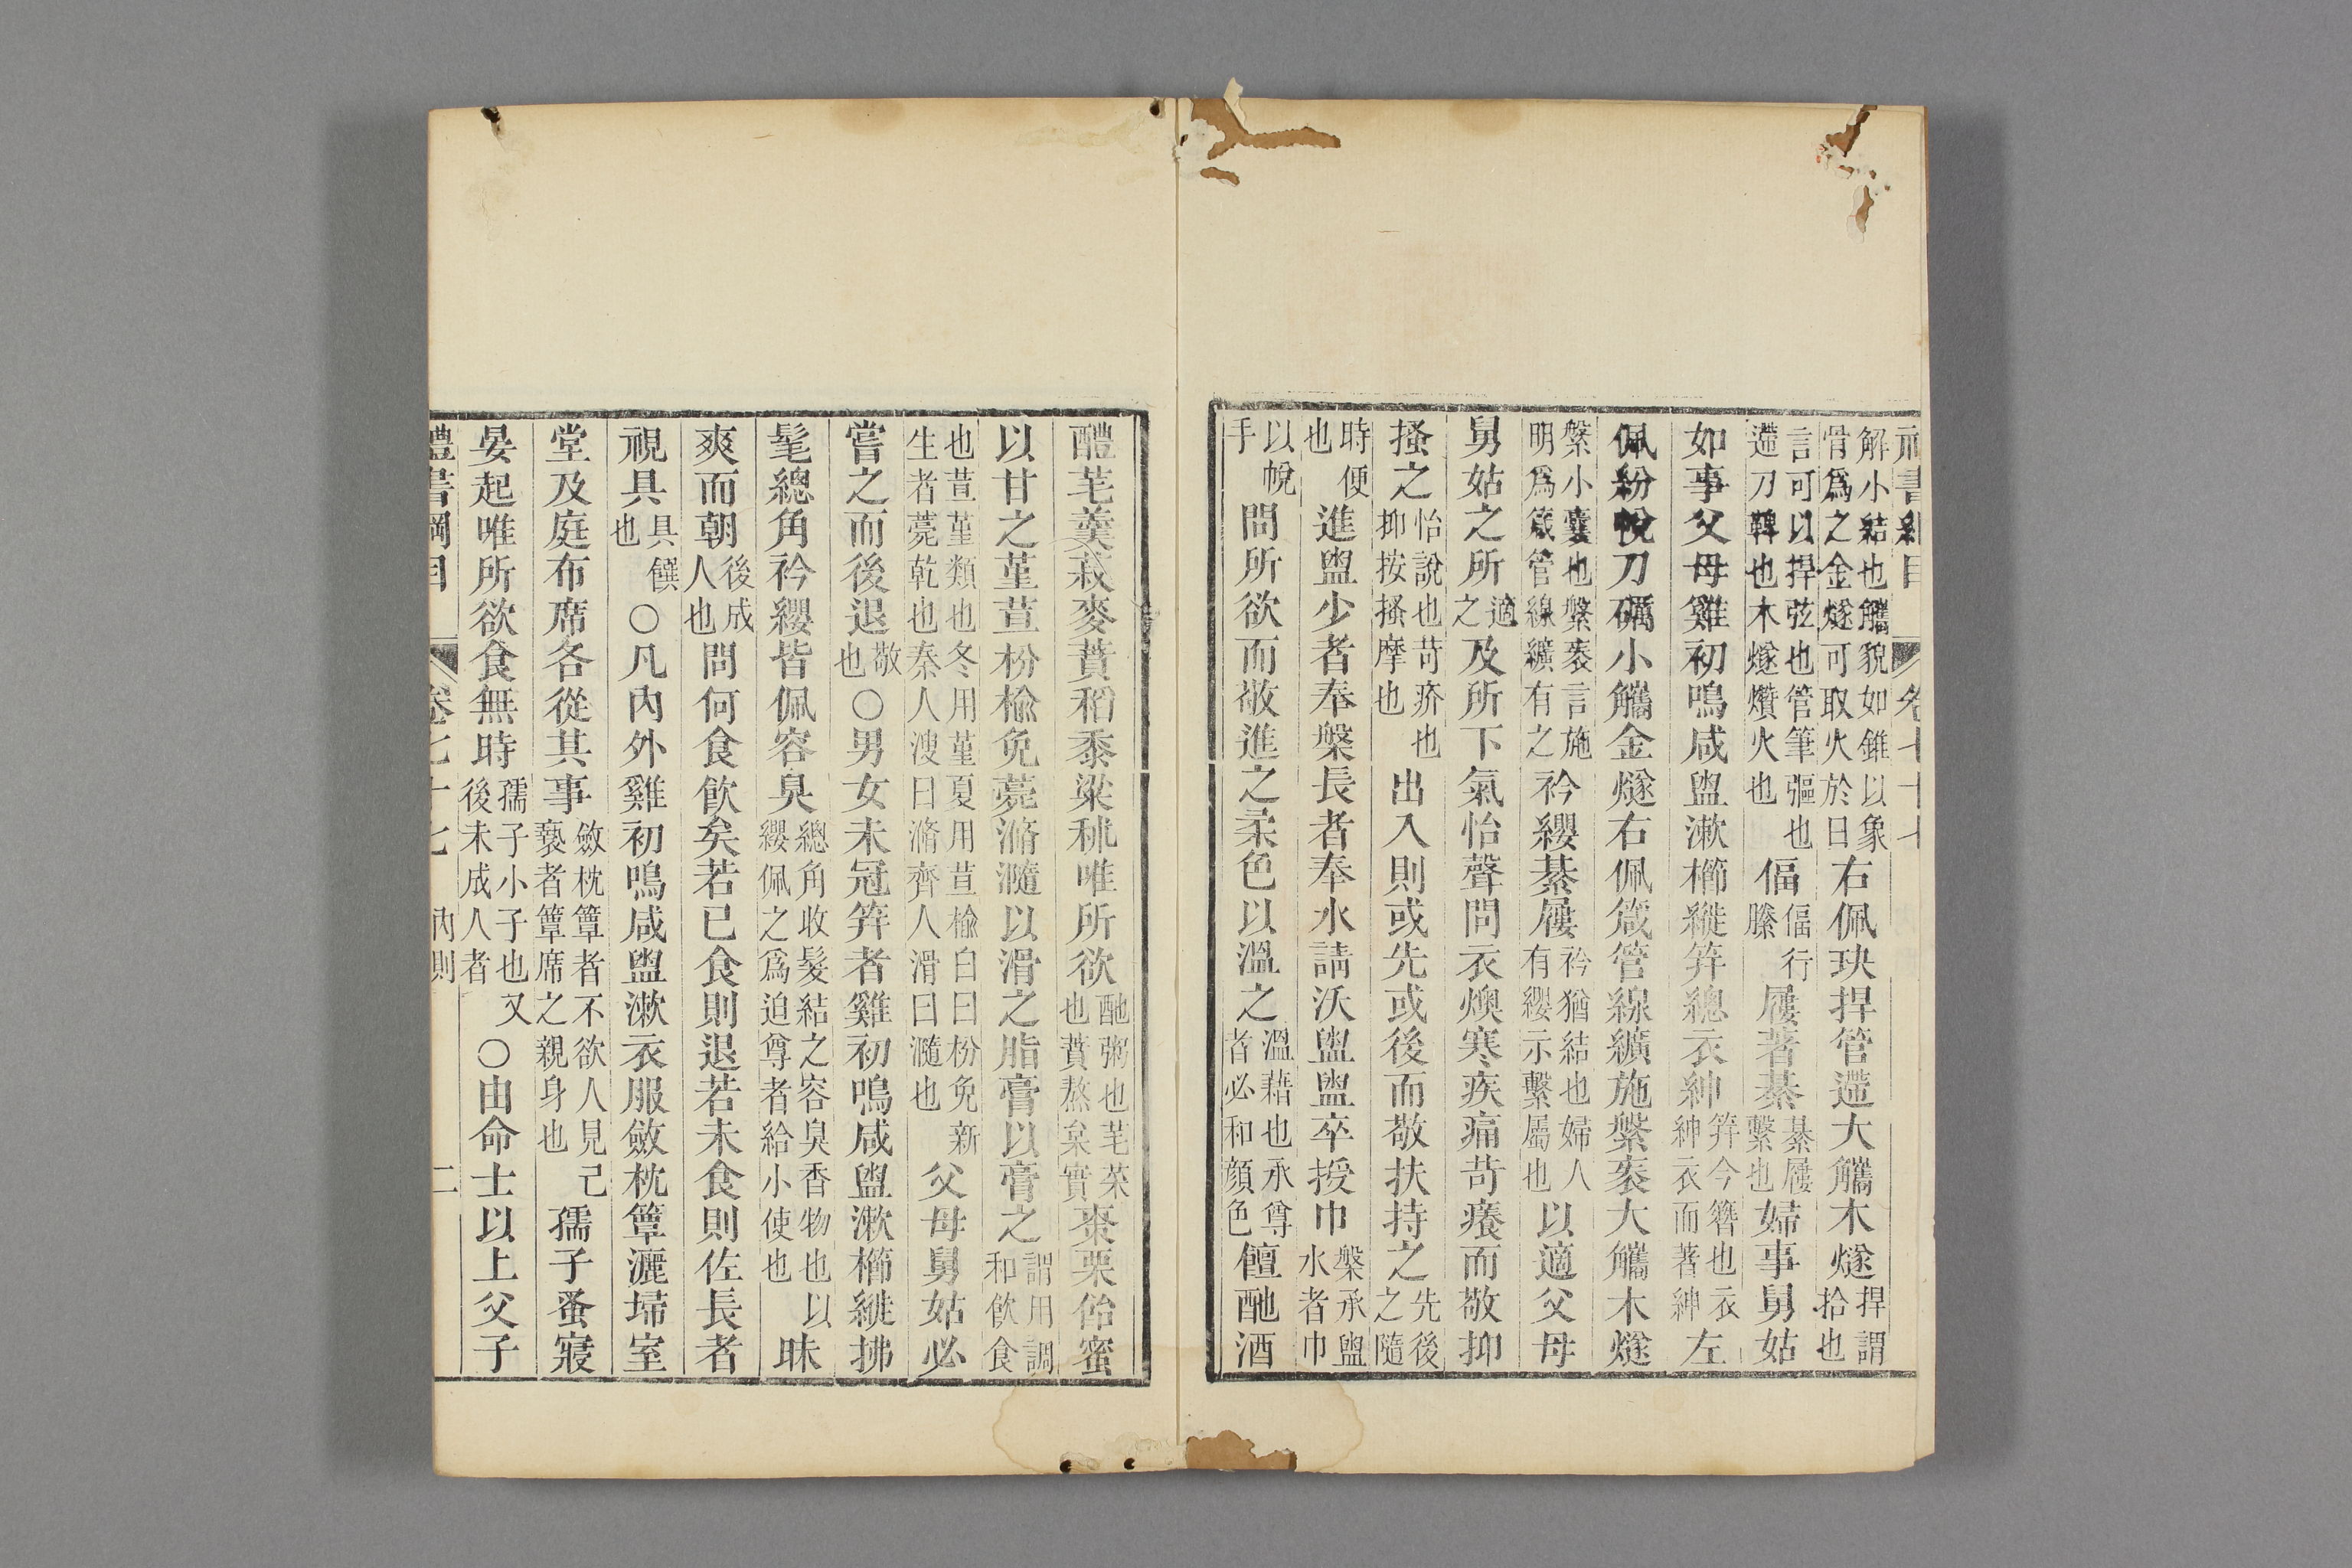 禮書綱目 卷七十七
解小結也觿貌如錐以象骨爲之金燧可取火於日右佩玦捍管遰大觿木燧捍謂拾也
言可以捍弦也管筆彄也遰刀鞞也木燧鑽火也偪偪行縢屨著綦綦屨繫也婦事舅姑
如事父母雞初鳴咸盥漱櫛縰筓總衣紳筓今簪也衣紳衣而著紳左
佩紛帨刀礪小觿金燧右佩箴管線纊施縏袠大觿木燧
縏小囊也縏袠言施明爲箴管線纊有之衿纓綦屨衿猶結也婦人有纓示繫屬也以適父母
舅姑之所適之及所下氣怡聲問衣燠寒疾痛苛癢而敬抑
搔之怡說也苛疥也抑按搔摩也出入則或先或後而敬扶持之先後之隨
時便也進盥少者奉槃長者奉水請沃盥盥卒授巾槃承盥水者巾
以帨手問所欲而敬進之柔色以溫之溫藉也承尊者必和顔色饘酏酒
醴芼羹菽麥蕡稻黍粱秫唯所欲酏粥也芼菜也蕡熬枲實棗栗飴蜜
以甘之堇荁枌楡免薧滫瀡以滑之脂膏以膏之謂用調和飮食
也荁堇類也冬用堇夏用荁楡白曰枌免新生者薧乾也秦人溲曰滫齊人滑曰瀡也父母舅姑必
嘗之而後退敬也○男女未冠筓者雞初鳴咸盥漱櫛縰拂
髦總角衿纓皆佩容臭總角收髮結之容臭香物也以纓佩之爲迫尊者給小使也昧
爽而朝後成人也問何食飮矣若已食則退若未食則佐長者
視具具饌也○凡內外雞初鳴咸盥漱衣服斂枕簟灑埽室
堂及庭布席各從其事斂枕簟者不欲人見己褻者簟席之親身也孺子蚤寢
晏起唯所欲食無時孺子小子也又後未成人者○由命士以上父子
禮書綱目 卷七十七 內則 二